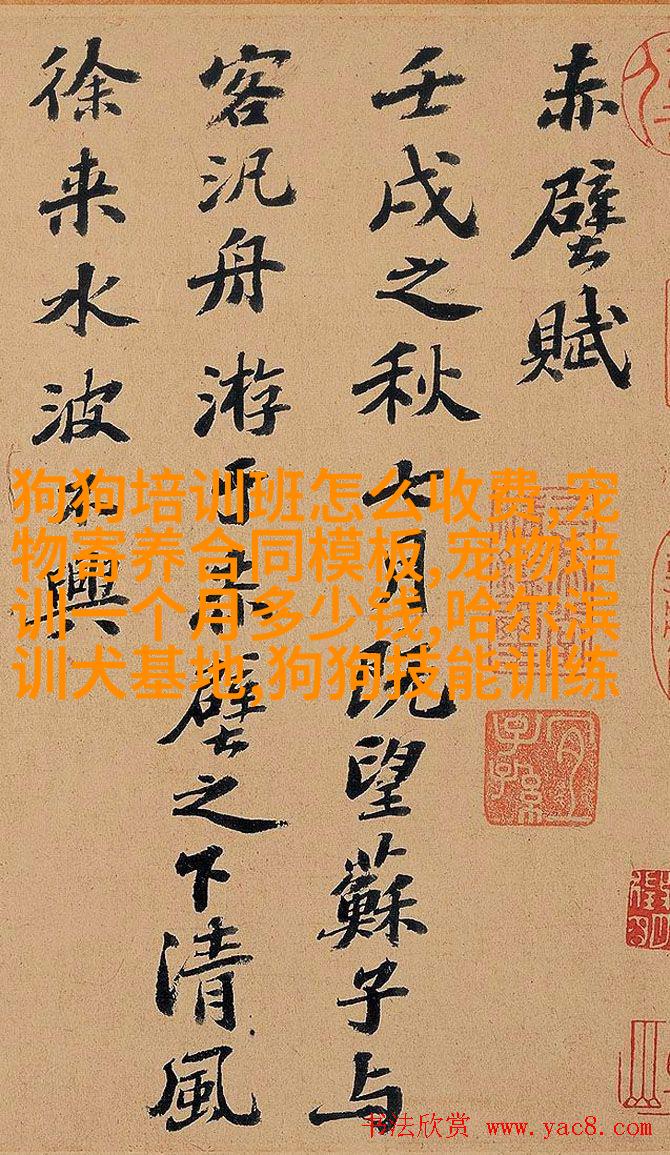 赤壁賦
壬戌之秋七月既望蘇子与
客汎舟游于赤壁之下清風
徐来水波不興
狗狗培训班怎么收费,宠
物寄养合同模板,宠物培
训一个月多少钱,哈尔滨
训犬基地,狗狗技能训练
书法欣赏 www.yac8.com